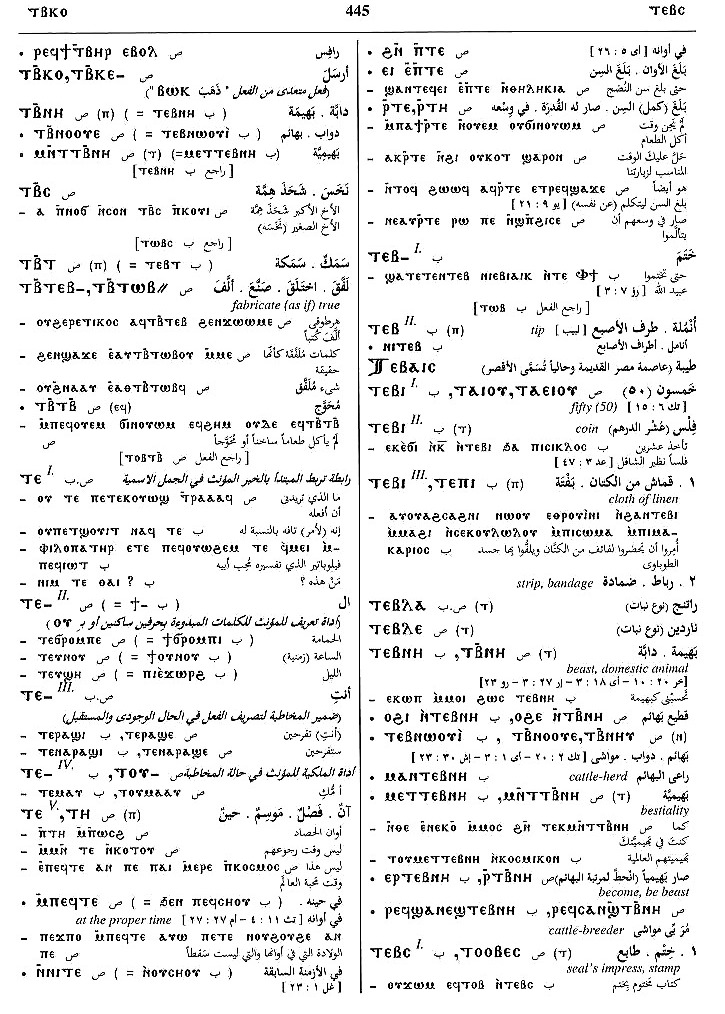 ⲧⲃ̅ⲕⲟ 445 ⲧⲉⲃⲥ
• ⲣⲉϥϯⲧⲃ̅ⲏⲣ ⲉⲃⲟⲗ ص رافِس
ⲧⲃ̅ⲕⲟ, ⲧⲃ̅ⲕⲉ– ص أرسَلَ
(فعل متعدى من الفعل " ذَهَبَ ⲃⲱⲕ")
ⲧⲃ̅ⲛⲏ ص (ⲡ) ( = ⲧⲉⲃⲛⲏ ب ) دابَّة . بَهيمَة
• ⲧⲃ̅ⲛⲟⲟⲩⲉ ص ( = ⲧⲉⲃⲛⲱⲟⲩⲓ̀ ب ) دواب . بهائم
• ⲙⲛ̅ⲧⲧⲃ̅ⲛⲏ ص (ⲧ) (=ⲙⲉⲧⲧⲉⲃⲛⲏ ب) بَهيميَّة
[ راجع ب ⲧⲉⲃⲛⲏ ]
ⲧⲃ̅ⲥ ص نَخَسَ . شَحَذَ هِمَّة
– ⲁ ⲡ̅ⲛⲟϭ ⲛ̅ⲥⲟⲛ ⲧⲃ̅ⲥ ⲡⲕⲟⲩⲓ ص الأخ الأكبر شَحَذَ هِمَّة
الأخ الصغير (نَخَسَه)
[ راجع ب ⲧⲱⲃⲥ ]
ⲧⲃ̅ⲧ ص (ⲡ) ( = ⲧⲉⲃⲧ ب ) سَمَكٌ . سَمَكة
ⲧⲃ̅ⲧⲉⲃ–, ⲧⲃ̅ⲧⲱⲃ// ص لَفَّقَ . اختَلَقَ . صَنَّعَ . ألَّفَ
fabricate (as if) true
– ⲟⲩϩⲉⲣⲉⲧⲓⲕⲟⲥ ⲁϥⲧⲃ̅ⲧⲉⲃ ϩⲉⲛϫⲱⲱⲙⲉ ص هرطوقى
ألَّفَ كُتباً
– ϩⲉⲛϣⲁϫⲉ ⲉⲁⲩⲧⲃ̅ⲧⲱⲃⲟⲩ ⲙ̅ⲙⲉ ص كلمات مُلَفَّقة كأنَّها
حقيقة
– ⲟⲩϩⲛⲁⲁⲩ ⲉⲁⲑⲧⲃ̅ⲧⲱⲃϥ ص شىء مُلَفَّق
• ⲧⲃ̅ⲧⲃ̅ ص (ⲉϥ)
– ⲙ̅ⲡⲉϥⲟⲩⲉⲙ ϭⲓⲛⲟⲩⲱⲙ ⲉϥϩⲏⲙ ⲟⲩⲇⲉ ⲉϥⲧⲃ̅ⲧⲃ̅
ص لَمْ يأكل طعاماً ساخناً
[ راجع الفعل ص ⲧⲟⲃⲧⲃ̅ ]
ⲧⲉ I. ص.ب رابطة تربط المبتدأ بالخبر المؤنث في الجمل الاسمية
– ⲟⲩ ⲧⲉ ⲡⲉⲧⲉⲕⲟⲩⲱϣ ⲧ̅ⲣⲁⲁⲁϥ ص ما الذي تريدنى
أن أفعله
– ⲟⲩⲡⲉⲧϣⲟⲩⲓⲧ ⲛⲁϥ ⲧⲉ ب إنه (لأمر) تافه بالنسبة له
– ⲫⲓⲗⲟⲡⲁⲧⲏⲣ ⲉⲧⲉ ⲡⲉϥⲟⲩⲱϩⲉⲙ ⲧⲉ ϥ̀ⲙⲉⲓ ⲙ̀–
ⲡⲉϥⲓⲱⲧ ب فيلوباتير الذي تفسيره مُحِب أبيه
– ⲛⲓⲙ ⲧⲉ ⲑⲁⲓ ? ب مَنْ هذه ؟
ⲧⲉ– II. ص ( = ϯ– ب ) ال
(أداة تعريف للمؤنث للكلمات المبدوءة بحرفين ساكنين أو بـ ⲟⲩ)
– ⲧⲉϭⲣⲟⲙⲡⲉ ص ( = ϯϭⲣⲟⲙⲡⲓ ب ) الحمامة
– ⲧⲉⲩⲛⲟⲩ ص ( = ϯⲟⲩⲛⲟⲩ ب ) الساعة (زمنية)
– ⲧⲉⲩϣⲏ ص ( = ⲡⲓⲉ̀ϫⲱⲣϩ ب ) الليل
ⲧⲉ– III. ص.ب أنتِ
(ضمير المخاطبة لتصريف الفعل في الحال الوجودى والمستقبل)
– ⲧⲉⲣⲁϣⲓ ب, ⲧⲉⲣⲁϣⲉ ص (أنتِ) تفرحين
– ⲧⲉⲛⲁⲣⲁϣⲓ ب, ⲧⲉⲛⲁⲣⲁϣⲉ ص ستفرحين
ⲧⲉ– IV. ب, ⲧⲟⲩ– ص أداة الملكية للمؤنث في حالة المخاطبة
– ⲧⲉⲙⲁⲩ ب, ⲧⲟⲩⲙⲁⲁⲩ ص أمُّكِ
ⲧⲉ V., ⲧⲏ ص (ⲡ) آنٌ . فَصْلٌ . مَوسِمٌ . حينٌ
– ⲡ̅ⲧⲏ ⲙ̅ⲡⲱϩⲥ ص أوان الحصاد
– ⲙ̅ⲙⲛ̅ ⲧⲉ ⲛ̅ⲕⲟⲧⲟⲩ ص ليس وقت رجوعهم
– ⲉ̅ⲡⲉϥⲧⲉ ⲁⲛ ⲡⲉ ⲡⲁⲓ ⲙ̅ⲉⲣⲉ ⲡⲕⲟⲥⲙⲟⲥ ص ليس هذا
وقت محبة العالَم
• ⲙ̅ⲡⲉϥⲧⲉ ص ( = ϧⲉⲛ ⲡⲉϥⲥⲛⲟⲩ ب ) في حينه .
at the proper time [ تث ١١ : ٤ – أم ٢٧ : ٢٧ ] في أوانه
– ⲡⲉϫⲡⲟ ⲙ̅ⲡⲉϥⲧⲉ ⲁⲩⲱ ⲡⲉⲧⲉ ⲛⲟⲩϩⲟⲩϩⲉ ⲁⲛ
ⲡⲉ ص الولادة التي في أوانها والتي ليست سَقطاً
• ⲛ̅ⲛⲓⲧⲉ ص ( = ⲛ̀ⲟⲩⲥⲛⲟⲩ ب ) في الأزمنة السابقة
[ غل ١ : ٢٣ ]
• ϩⲛ̅ ⲡ̅ⲧⲉ ص في أوانه [ أى ٥ : ٢٦ ]
• ⲉⲓ ⲉ̅ⲡⲧⲉ ص بَلَغَ الأوان . بَلَغَ السِن
– ϣⲁⲛⲧⲉϥⲉⲓ ⲉ̅ⲡⲧⲉ ⲛ̅ⲑⲏⲗⲏⲕⲓⲁ ص حتى بلغ سن النُضج
• ⲣ̅ⲧⲉ, ⲣ̅ⲧⲏ ص بَلَغَ (كمل) السِن . صار له القُدرَة . في وِسْعه
– ⲙ̅ⲡⲁϯⲣ̅ⲧⲉ ⲛ̅ⲟⲩⲉⲙ ⲟⲩϭⲓⲛⲟⲩⲱⲙ ص لَمْ يَحِن وقت
أكل الطعام
– ⲁⲕⲣ̅ⲧⲉ ⲛ̅ϩⲓ ⲟⲩⲕⲟⲧ ϣⲁⲣⲟⲛ ص حَلَّ عليك الوقت
المناسب لزيارتنا
– ⲛ̅ⲧⲟϥ ϩⲱⲱϥ ⲁϥⲣ̅ⲧⲉ ⲉⲧⲣⲉϥϣⲁϫⲉ ص هو أيضاً
بلغ السن ليتكلم (عن نفسه) [ يو ٩ : ٢١ ]
– ⲛⲉⲁⲩⲣ̅ⲧⲉ ⲣⲱ ⲡⲉ ⲛ̅ϣⲡ̅ϩⲓⲥⲉ ص صار في وسعهم أن
يتألَّموا
ⲧⲉⲃ– I. ب خَتَمَ
– ϣⲁⲧⲉⲧⲉⲛⲧⲉⲃ ⲛⲓⲉⲃⲓⲁⲓⲕ ⲛ̀ⲧⲉ Ⲫϯ ب حتى تختموا
عبيد الله [ رؤ ٧ : ٣ ]
[ راجع الفعل ب ⲧⲱⲃ ]
ⲧⲉⲃ II. ب (ⲡ) tip [ لبيب ] أُنْمُلة . طرف الأصبع
• ⲛⲓⲧⲉⲃ ب أنامل . أطراف الأصابع
Ⲧⲉⲃⲁⲓⲥ طيبة (عاصمة مصر القديمة وحالياً تُسَمَّى الأقصر)
ⲧⲉⲃⲓ I. ب, ⲧⲁⲓⲟⲩ, ⲧⲁⲉⲓⲟⲩ ص خمسون (٥٠)
fifty (50) [ تك ٦ : ١٥ ]
ⲧⲉⲃⲓ II. ب (ⲧ) coin فِلْس (عُشْر الدرهم)
– ⲉⲕⲉ̀ϭⲓ ⲛ̀ⲕ̅ ⲛ̀ⲧⲉⲃⲓ ϧⲁ ⲡⲓⲥⲓⲕⲗⲟⲥ ب تأخذ عشرين
فلساً نظير الشاقل [ عد ٣ : ٤٧ ]
ⲧⲉⲃⲓ III., ⲧⲉⲡⲓ ب (ⲡ) ١ . قماش من الكتان . بَفْتَة
cloth of linen
– ⲁⲩⲟⲩⲁϩⲥⲁϩⲛⲓ ⲛⲱⲟⲩ ⲉⲑⲣⲟⲩⲓ̀ⲛⲓ ⲛ̀ϩⲁⲛⲧⲉⲃⲓ
ⲙ̀ⲙⲁϩⲓ ⲛ̀ⲥⲉⲕⲟⲩⲗⲱⲗⲟⲩ ⲙ̀ⲡⲓⲥⲱⲙⲁ ⲙ̀ⲡⲓⲙⲁ–
ⲕⲁⲣⲓⲟⲥ ب أُمِروا أن يحضروا لفائف من الكتَّان ويلفُّوا بها جسد
الطوباوى
strip, bandage ٢ . رباط . ضمادة
ⲧⲉⲃⲗⲁ ص.ب (ⲧ) راتِنج (نوع نبات)
ⲧⲉⲃⲗⲉ ص (ⲧ) ناردين (نوع نبات)
ⲧⲉⲃⲛⲏ ب, ⲧⲃ̅ⲛⲏ ص (ⲧ) بَهيمة . دابَّة
beast, domestic animal
[ خر ٢٠ : ١٠ – أى ١٨ : ٣ – إر ٢٧ : ٣ – رو ٢٣ ]
– ⲉⲕⲱⲡ ⲙ̀ⲙⲟⲓ ϩⲱⲥ ⲧⲉⲃⲛⲏ ب تَحسبُنى كبهيمة
• ⲟϩⲓ ⲛ̀ⲧⲉⲃⲛⲏ ب, ⲟϩⲉ ⲛ̅ⲧⲃ̅ⲛⲏ ص قطيع بَهائم
• ⲧⲉⲃⲛⲱⲟⲩⲓ̀ ب, ⲧⲃ̅ⲛⲟⲟⲩⲉ, ⲧⲃ̅ⲛⲏⲩ ص (ⲛ)
بَهائم . دواب . مواشى [ تك ٢ : ٢٠ – أى ١ : ٣ – إش ٣٠ : ٢٣ ]
• ⲙⲁⲛⲧⲉⲃⲛⲏ ب cattle-herd راعى البَهائم
• ⲙⲉⲧⲧⲉⲃⲛⲏ ب, ⲙⲛ̅ⲧⲧⲃ̅ⲛⲏ ص (ⲧ) بَهيميَّة
bestiality
– ⲛ̅ⲑⲉ ⲉ̅ⲛⲉⲕⲟ̅ ⲙ̅ⲙⲟⲥ ϩⲛ̅ ⲧⲉⲕⲙⲛ̅ⲧⲧⲃ̅ⲛⲏ ص كما
كنتَ في بَهيميَّتك
– ⲧⲟⲩⲙⲉⲧⲧⲉⲃⲛⲏ ⲛ̀ⲕⲟⲥⲙⲓⲕⲟⲛ ب بَهيميتهم العالمية
• ⲉⲣⲧⲉⲃⲛⲏ ب, ⲣ̅ⲧⲃ̅ⲛⲏ ص صار بَهيمياً (انْحطَّ لمرتبة البهائم)
become, be beast
• ⲣⲉϥϣⲁⲛⲉϣⲧⲉⲃⲛⲏ ب, ⲣⲉϥⲥⲁⲛϣ̅ⲧⲃ̅ⲛⲏ ص
cattle-breeder مُرَبِّى مواشى
ⲧⲉⲃⲥ I. ب, ⲧⲟⲟⲃⲉⲥ ص (ⲧ) ١ . خَتْم . طابع
seal's impress, stamp
– ⲟⲩϫⲱⲙ ⲉϥⲧⲟⲃ ⲛ̀ⲧⲉⲃⲥ ب كتاب مختوم بِختم